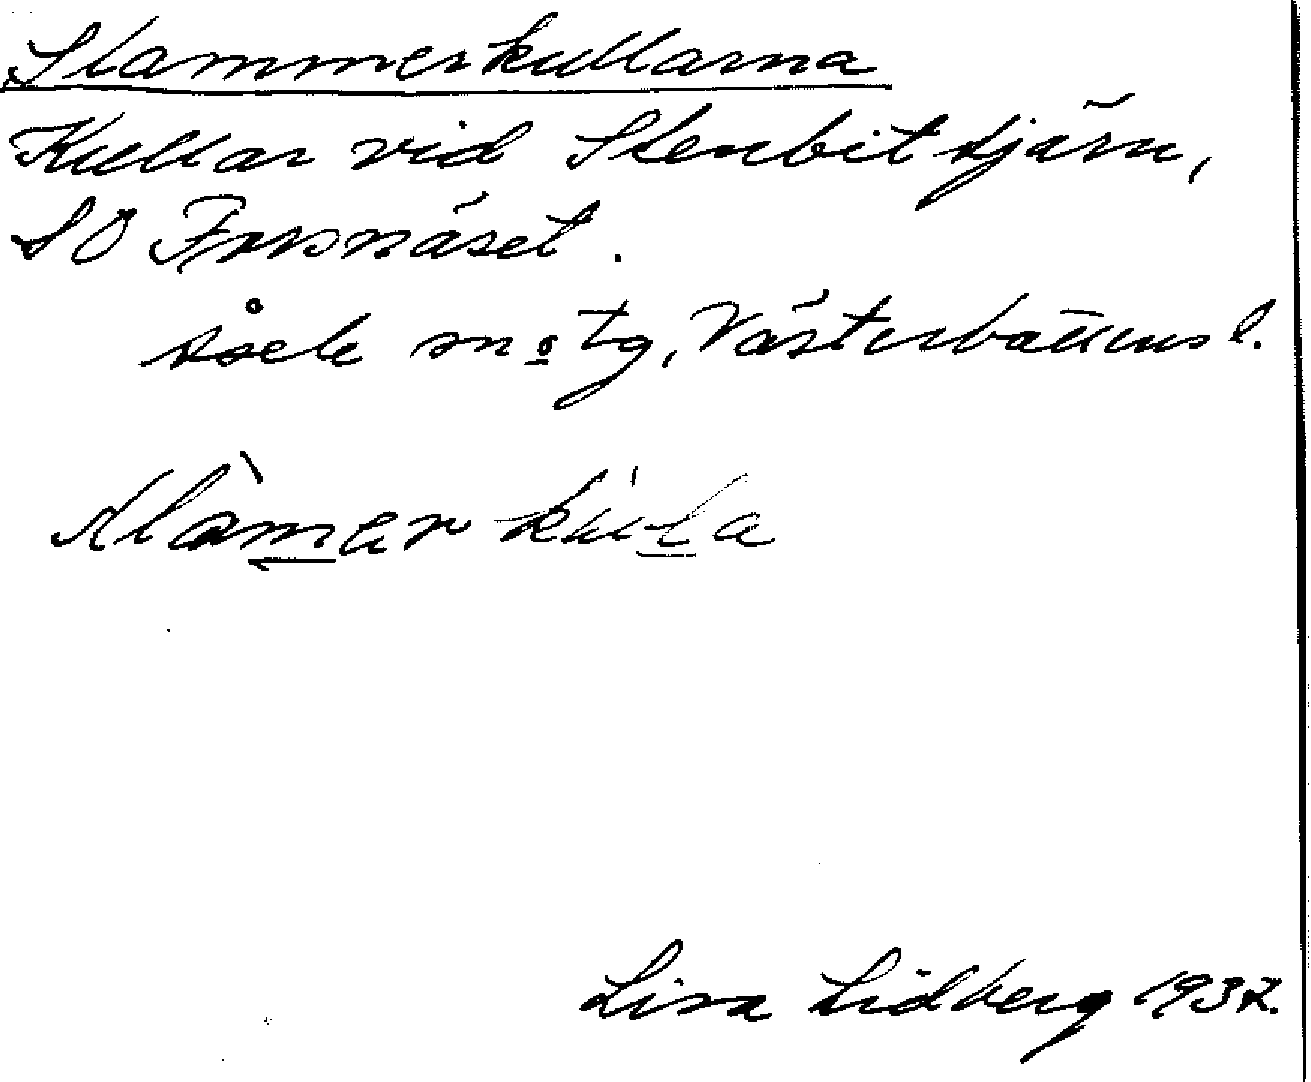 Slammerkullarna
Kullar vid Stenbittjärn,
SO Forsnäset.
Åsele sn o tg, Västerbottens l.
slàmer kùla
Lisa Lidberg 1937.